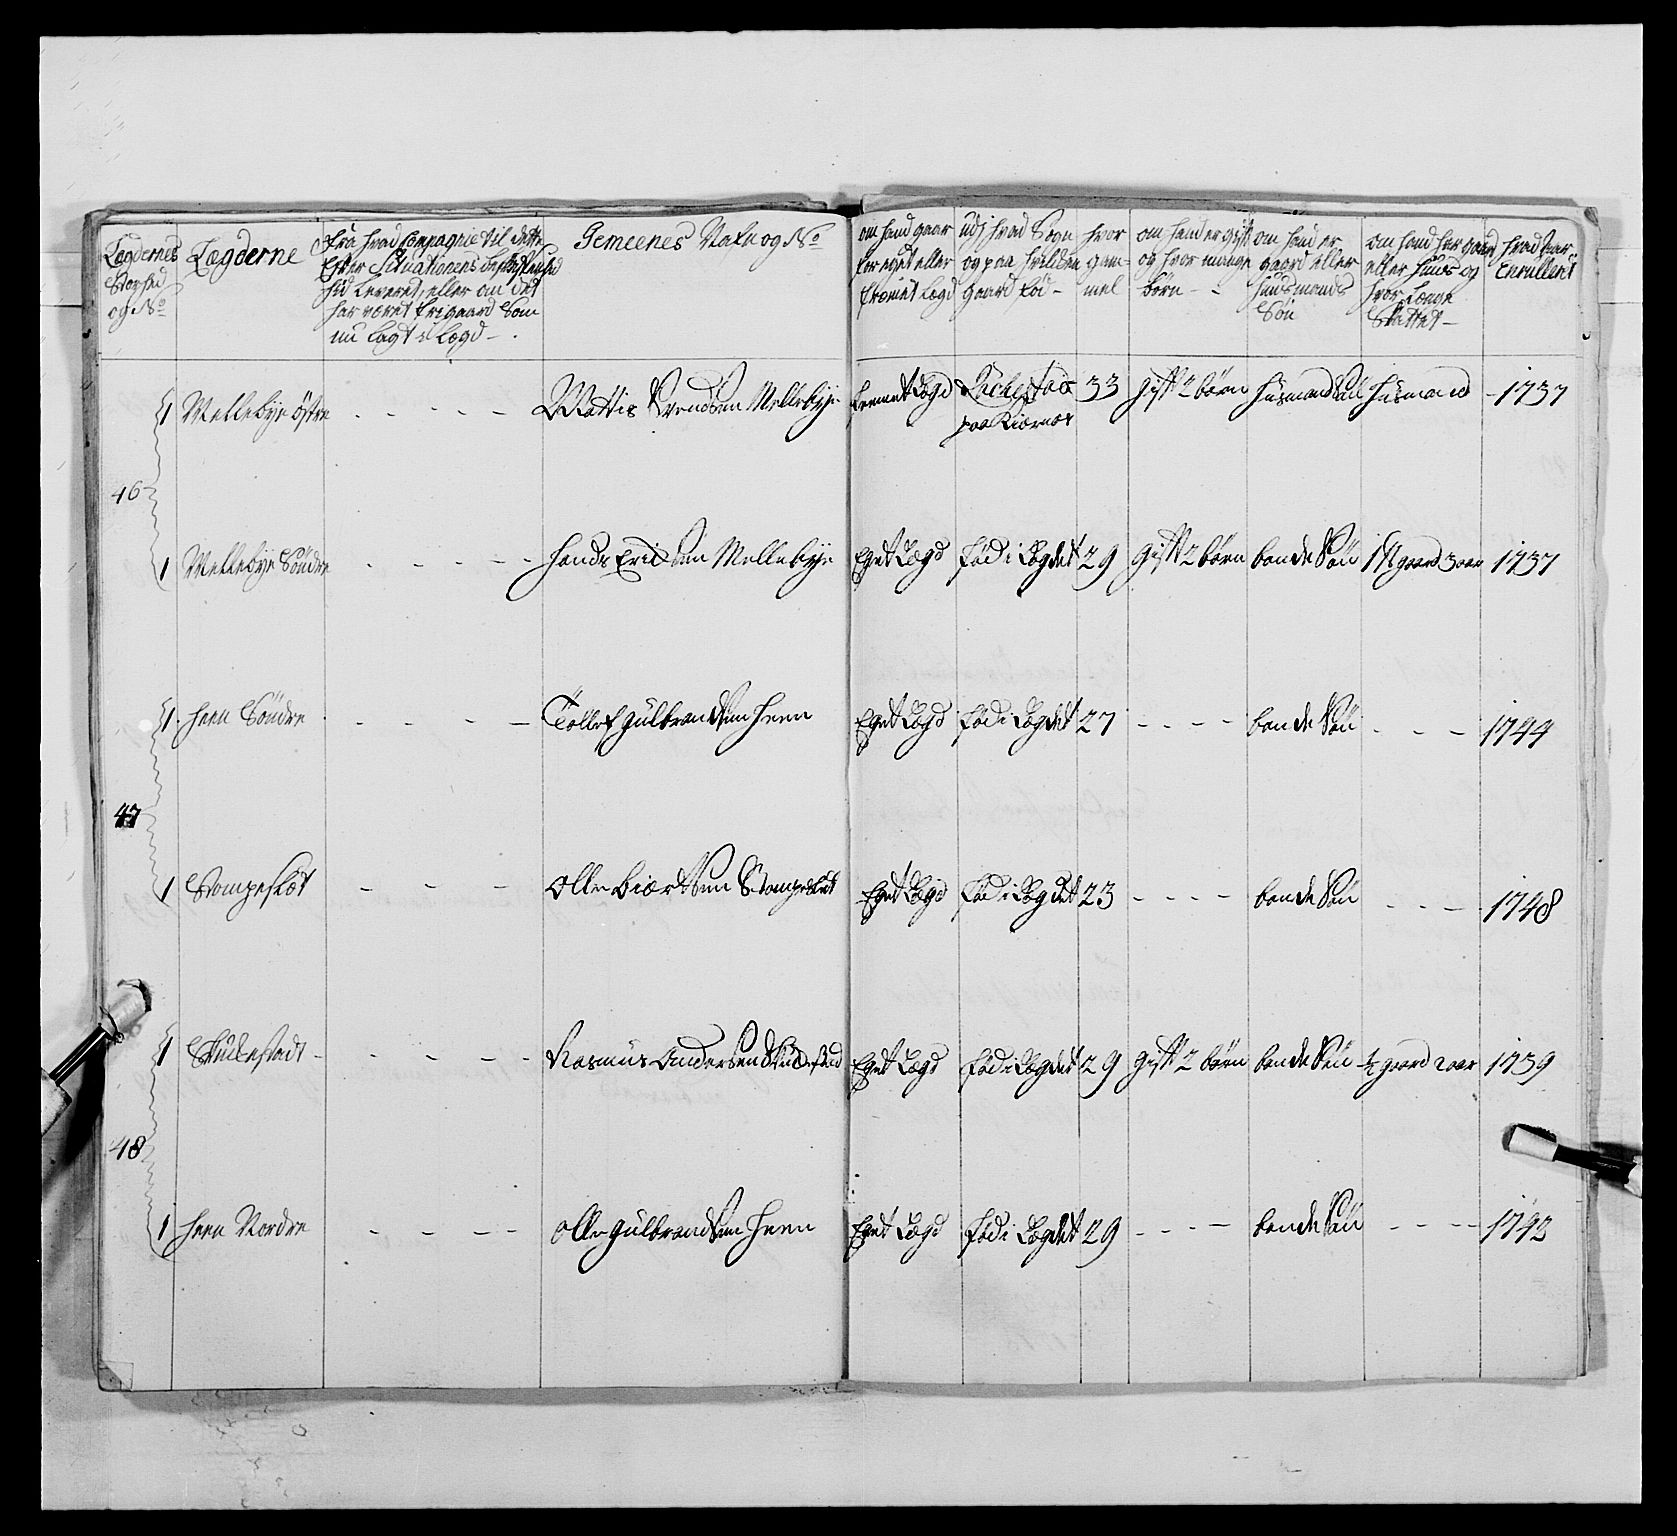 Lægdernes
Storhed
og No
Lægderne
Fra hvad Compagnie til dette
Efter Situationens
hid leveret, eller om det
har været frigaard Som
nu lagt i Lægd -
Gemeenes Nafn og No
om hand gaar
for eget eller
fremet Lægd
udj hvad Sogn
og paa hvilken
gaard fød -
hvor
gam-
mel
om hand er gift
og hvor mange
børn -
om hand er
gaard eller
huusmands
Søn
om hand har gaard
eller huus og
hvor længe
Skattet -
hvad aar
Enrullert
1 Mellebye østre - - - - - Mattis Svendsen Mellebye fremet Lægd 33 gift 2 børn husmand Søn husmand - 1737
paa Kiærnæs
46
1 Mellebye Søndre - - - - - Hands Ericksen Mellebye Eget Lægd fød i Lægdet 29 gift 2 børn bonde Søn gaard 3 aar 1737
1 heen Søndre - - - - - Tollef Gulbrandsen heen Eget Lægd fød i Lægdet 27 - - - - bonde Søn - - - 1744
47
1 Stompeskot - - - Olle Biørtsen Stompeskot Eget Lægd fød i Lægdet 23 - - - - bonde Søn - - - 1748
1 Skullestadt - - - - - Rasmus Andersen Skullestad Eget Lægd fød i Lægdet 29 gift 2 børn bonde Søn 1/2 gaard 2 aar 1739
48
1 heen Nordre - - - - Olle Gulbrandsen heen Eget Lægd fød i Lægdet 29 - - - - bonde Søn - - - - 1742